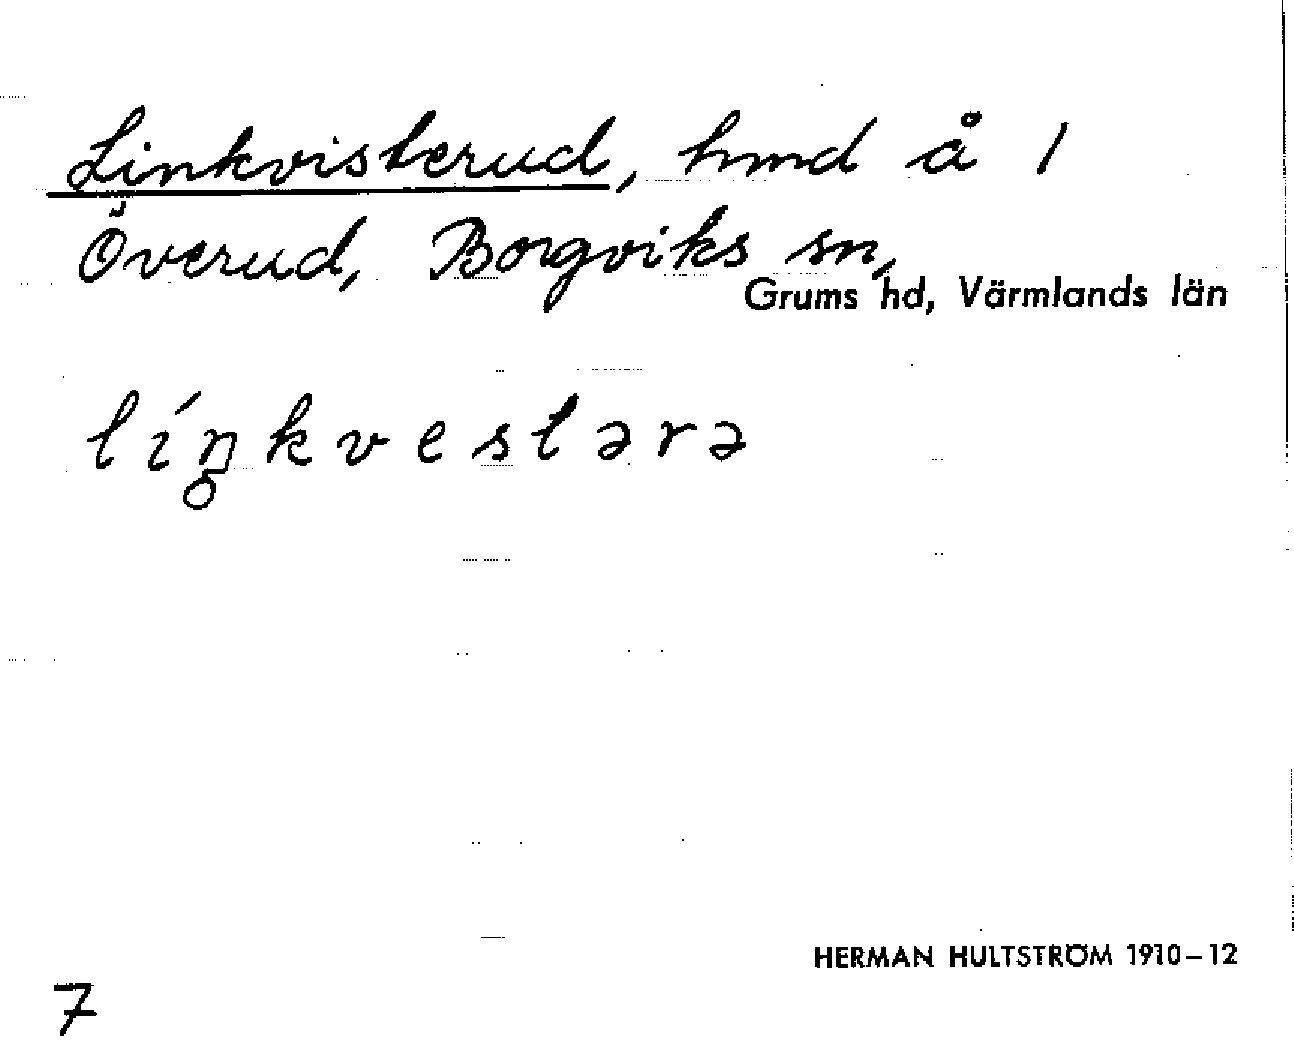 Linkvisterud, hmd å 1
Överud, Borgviks sn,
Grums hd, Värmlands län
líŋkvestərə
HERMAN HULTSTRÖM 1910–12
7